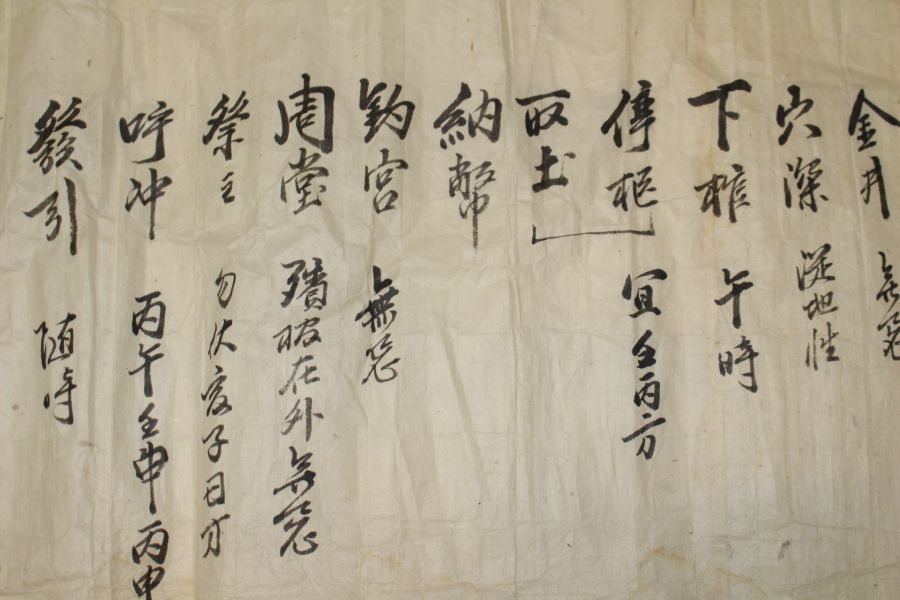 金井 無忌
穴深 從地性
下棺 午時
停柩 宜壬丙方
取土
納幣
釣宮 無忌
周堂 殯殿在外無忌
祭主 勿伏 子日方
呼冲 丙午壬申丙申
發引 随時